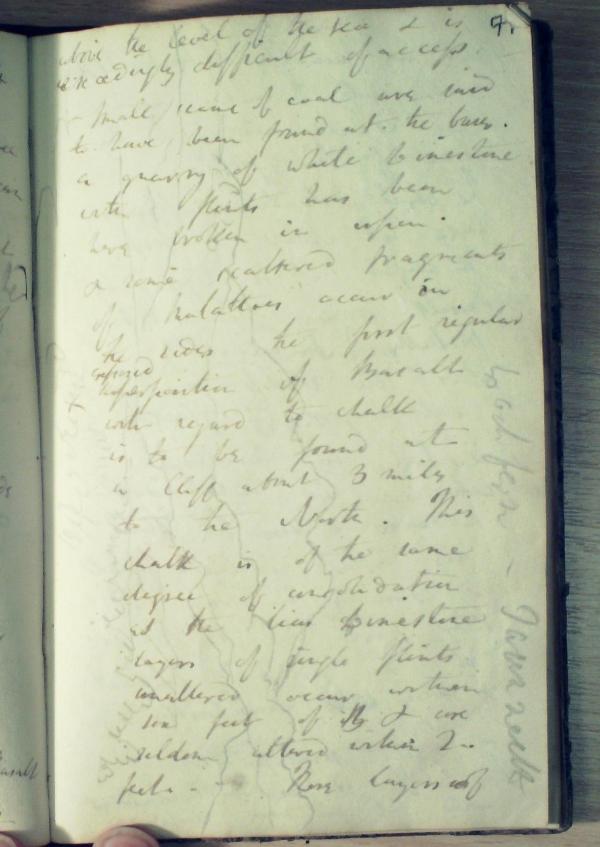 7.
above the level of the sea & is
exceedingly difficult of access.
Small seams of coal are said
to have been found at the base.
a quarry of white Limestone
with flints has been
have broken in upon.
& some scattered fragments
of occur in
the sides the first regular
exposed
superposition of Basalt
with regard to chalk
is to be found at
a Cliff about 3 miles
to the North. This
chalk is of the same
degree of consolidation
as the lias Limestone
layers of single flints
unaltered occur within
six feet of it & are
seldom altered within 2
feet. - layers of